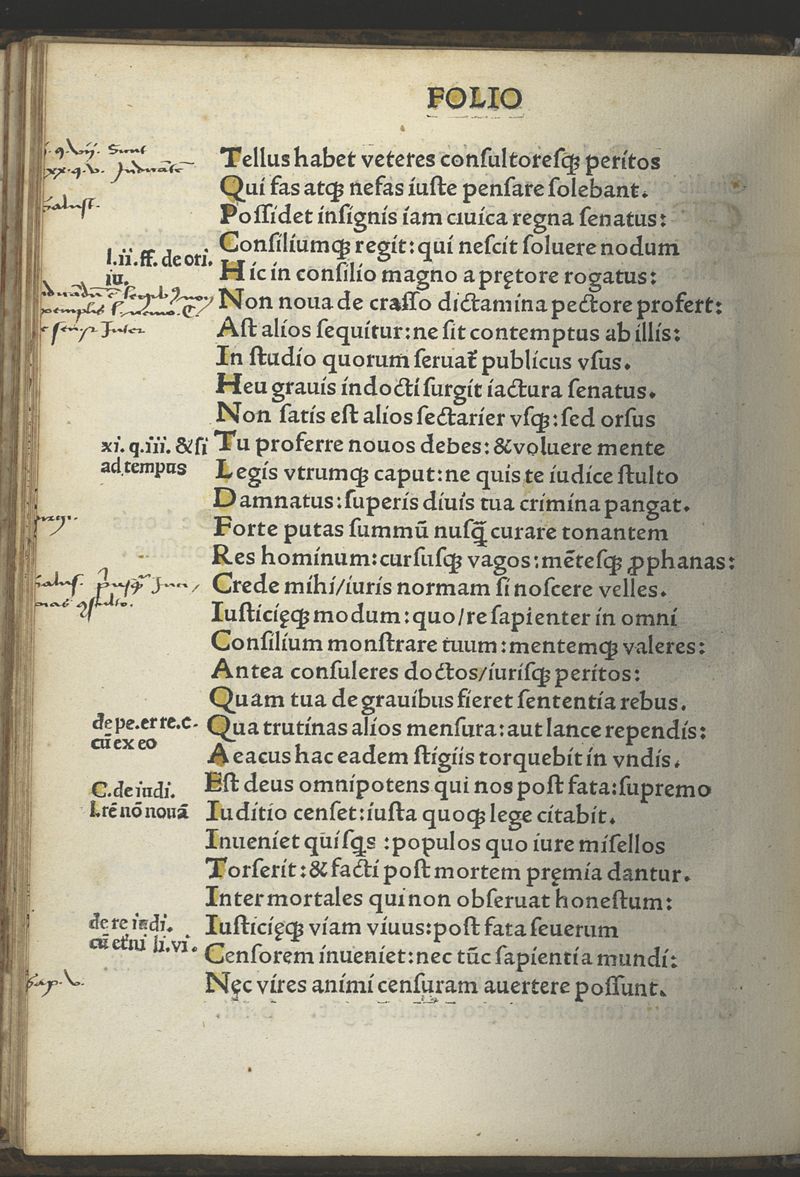 FOLIO
Tellus habet veteres conſultoreſqꝫ peritos
Qui fas atqꝫ nefas iuſte penſare ſolebant.
Poſſidet inſignis iam ciuica regna ſenatus:
Conſiliumqꝫ regit: qui neſcit ſoluere nodum
l.ii.ff. de ori.
iu.
Hic in conſilio magno a prętore rogatus:
Non noua de craſſo dictamina pectore profert:
Aſt alios ſequitur: ne ſit contemptus ab illis:
In ſtudio quorum ſeruat᷑ publicus vſus.
Heu grauis indocti ſurgit iactura ſenatus.
Non ſatis eſt alios ſectarier vſqꝫ: ſed orſus
xi. q.iii. &ſi
ad tempus
Tu proferre nouos debes: & voluere mente
Legis vtrumqꝫ caput: ne quis te iudice ſtulto
Damnatus: ſuperis diuis tua crimina pangat.
Forte putas ſummū nuſq̄ curare tonantem
Res hominum: curſuſqꝫ vagos: mēteſqꝫ ꝓphanas:
Crede mihi/iuris normam ſi noſcere velles.
Iuſticięqꝫ modum: quo/re ſapienter in omni
Conſilium monſtrare tuum: mentemqꝫ valeres:
Antea conſuleres doctos/iuriſqꝫ peritos:
Quam tua de grauibus fieret ſententia rebus.
de pe. et re. c.
cū ex eo
Qua trutinas alios menſura: aut lance rependis:
Aeacus hac eadem ſtigiis torquebit in vndis.
C. de iudi.
l. rē nō nouā
Eſt deus omnipotens qui nos poſt fata: ſupremo
Iuditio cenſet: iuſta quoqꝫ lege citabit.
Inueniet quiſqꝫs : populos quo iure miſellos
Torſerit: & facti poſt mortem pręmia dantur.
Inter mortales qui non obſeruat honeſtum:
de re iudi.
cū ętni li.vi.
Iuſticięqꝫ viam viuus: poſt fata ſeuerum
Cenſorem inueniet: nec tūc ſapientia mundi:
Nęc vires animi cenſuram auertere poſſunt.